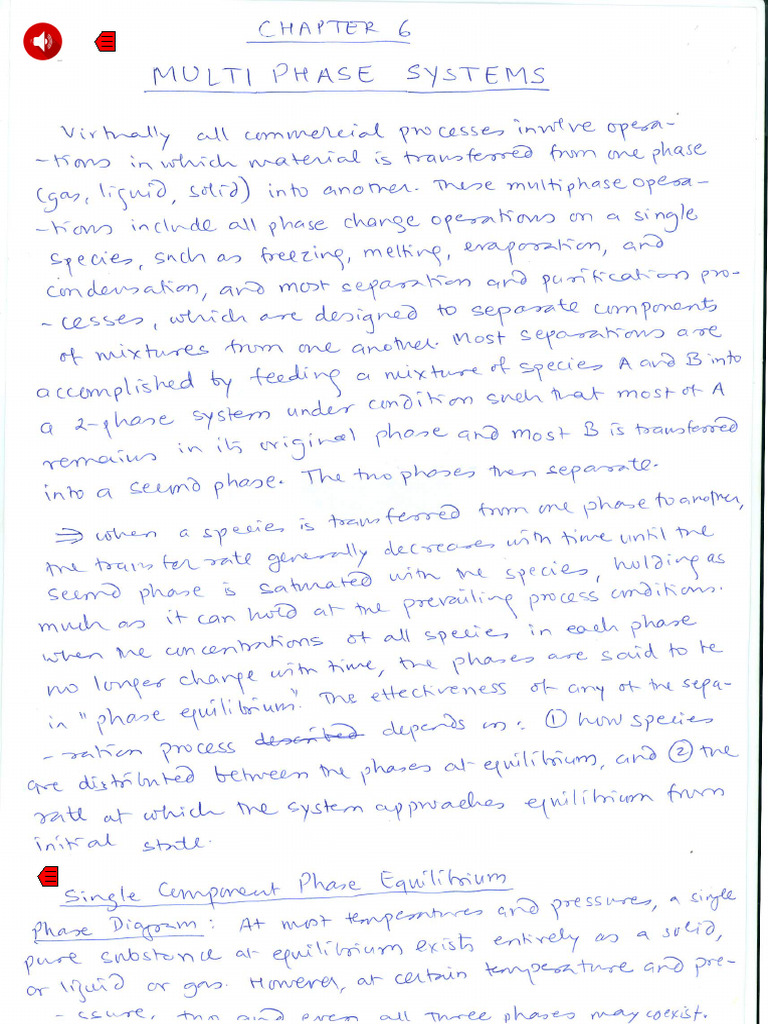 CHAPTER 6
MULTI PHASE SYSTEMS
Virtually all commercial processes involve opera-
-tions in which material is transferred from one phase
(gas, liquid, solid) into another. These multiphase opera-
-tions include all phase change operations on a single
species, such as freezing, melting, evaporation, and
condensation, and most separation and purification pro-
-cesses, which are designed to separate components
of mixtures from one another. Most separations are
accomplished by feeding a mixture of species A and B into
a 2-phase system under condition such that most of A
remains in its original phase and most B is transferred
into a second phase. The two phases then separate.
⇒ when a species is transferred from one phase to another,
the transfer rate generally decreases with time until the
second phase is saturated with the species, holding as
much as it can hold at the prevailing process conditions.
when the concentrations of all species in each phase
no longer change with time, the phases are said to be
in "phase equilibrium". The effectiveness of any of the sepa-
-ration process described depends on: ① how species
are distributed between the phases at equilibrium, and ② the
rate at which the system approaches equilibrium from
initial state.
Single Component Phase Equilibrium
Phase Diagram: At most temperatures and pressures, a single
pure substance at equilibrium exists entirely as a solid,
or liquid or gas. However, at certain temperature and pre-
-ssure, two and even all three phases may coexist.